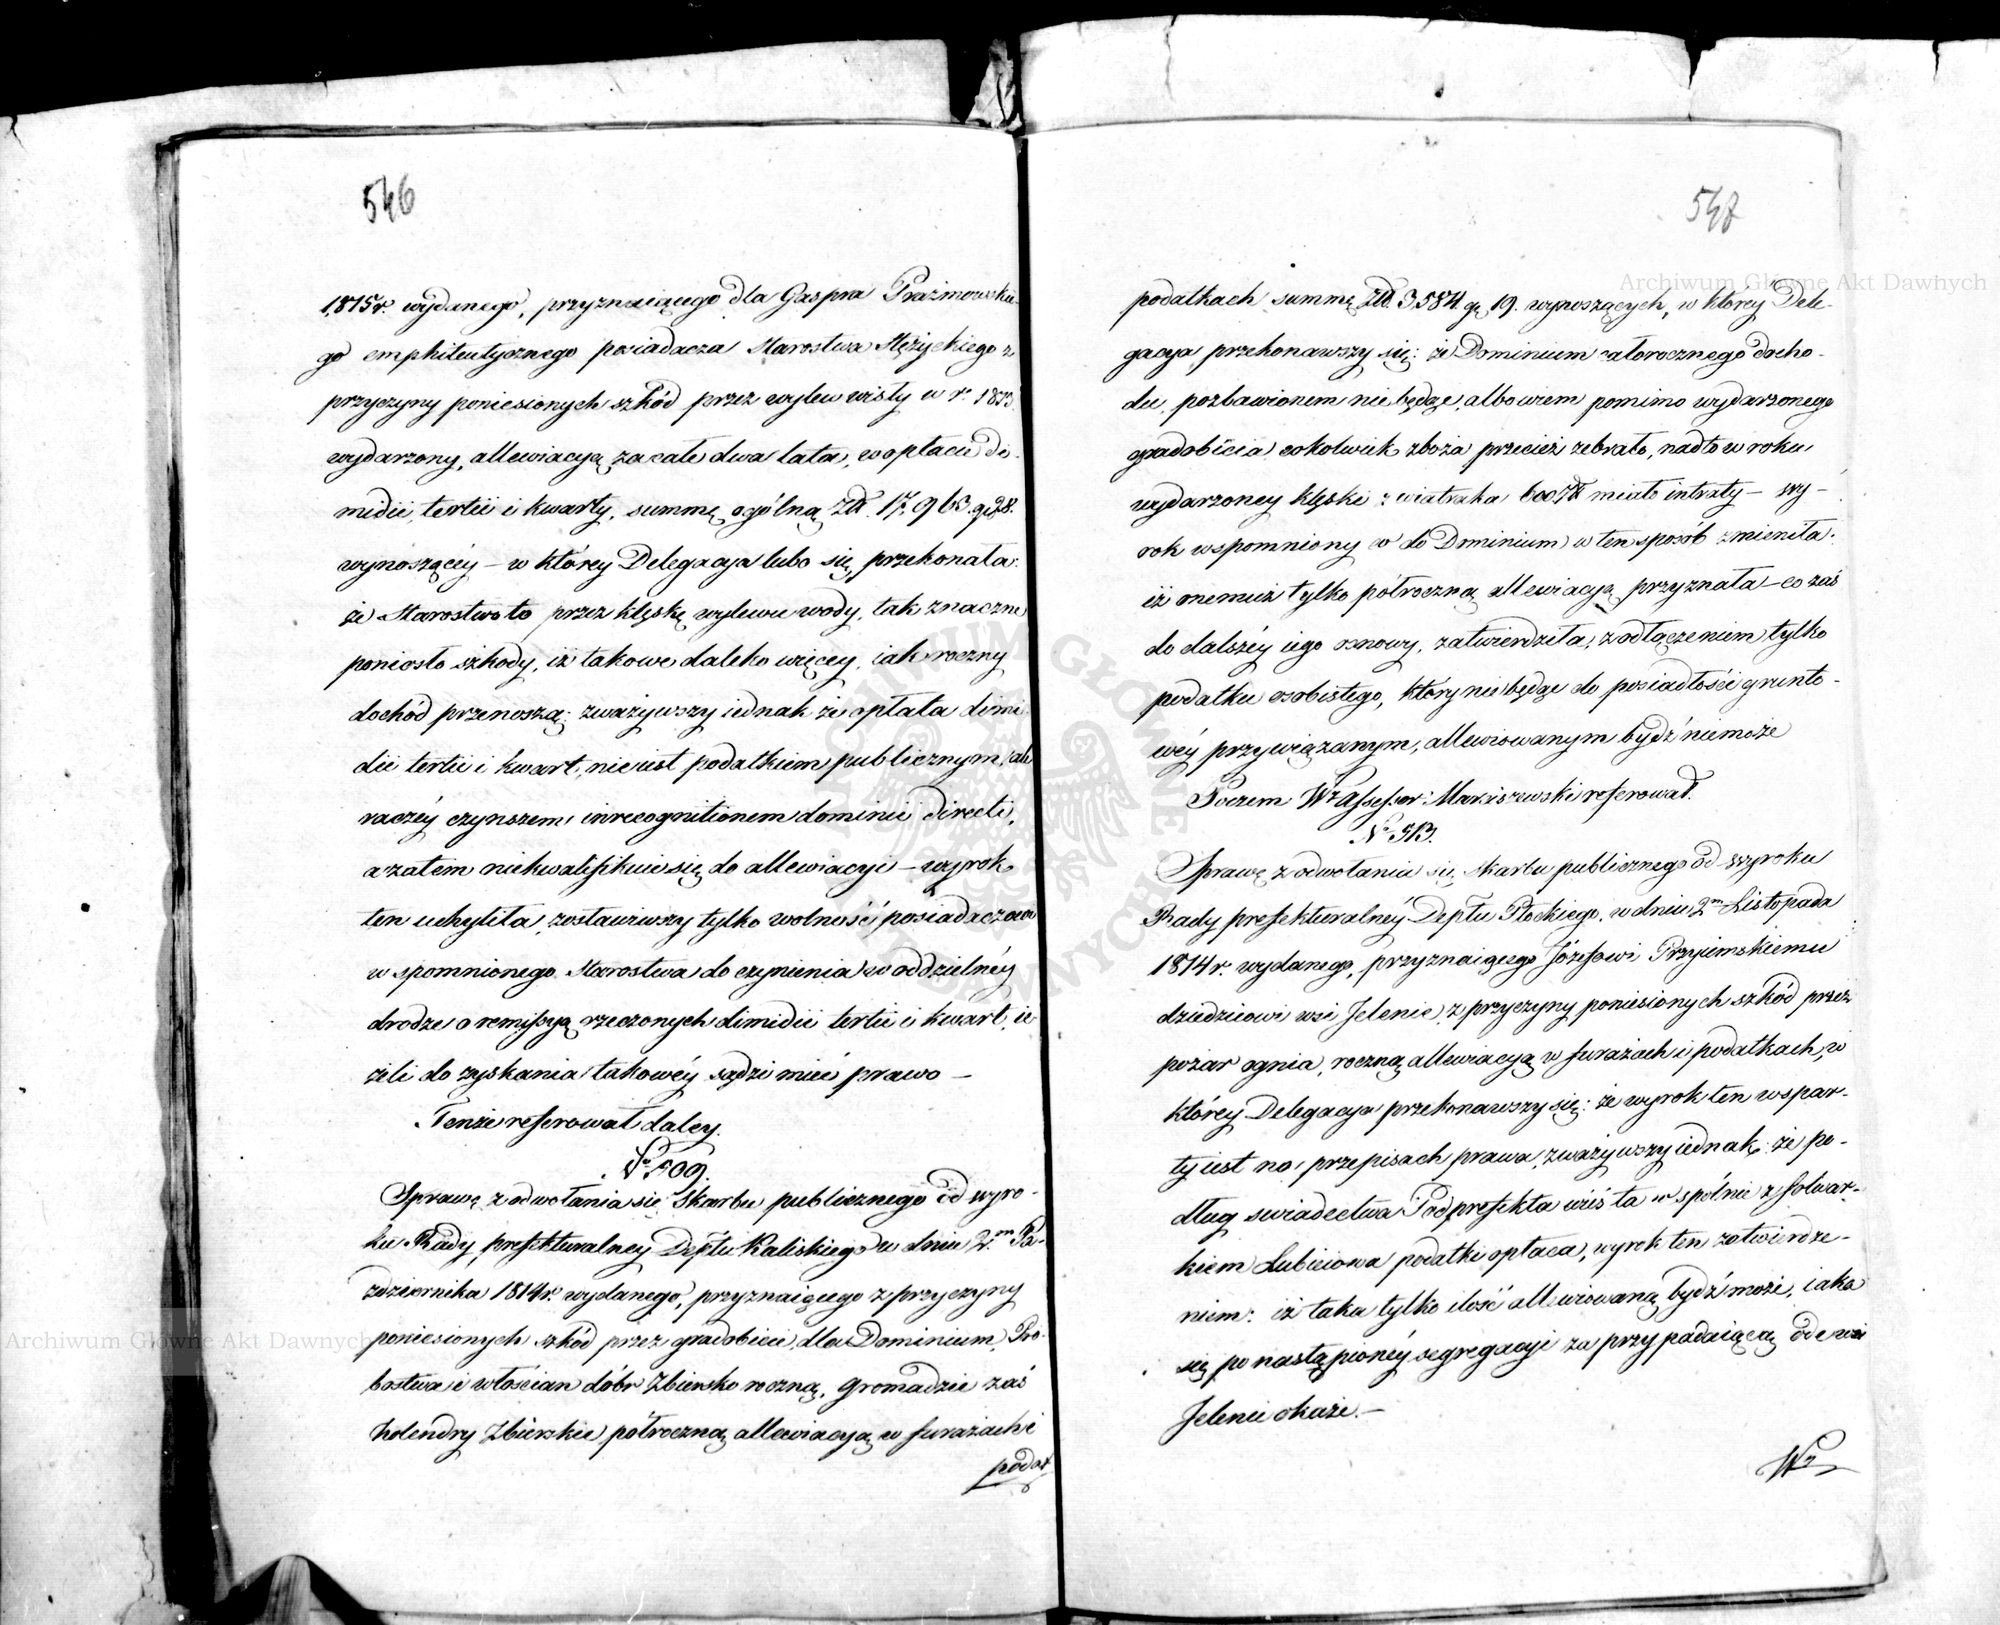 546
1815r. wydanego, przyznaiącego dla Gaspra Prażmowskie-
go emphiteutycznego posiadacza Starostwa Stężyckiego z
przyczyny poniesionych szkód przez wylew wisły w r. 1813
wydarzony, allewiacyą za całe dwa lata, w opłacie di-
midii, tertii i kwarty, summę ogólną Złł. 17,963. gr 28.
wynoszącéy – w którey Delegacya lubo się przekonała:
że Starostwo to przez klęskę wylewu wody, tak znaczne
poniosło szkody, iż takowe daleko więcey, iak roczny
dochód przenoszą; zważywszy iednak że opłata dimi-
dii tertii i kwart, nie iest podatkiem publicznym, ale
raczéy czynszem in recognitionem dominii directi,
a zatem niekwalifikuie się do allewiacyi – wyrok
ten uchyliła, zostawiwszy tylko wolność posiadaczowi
wspomnionego Starostwa do czynienia w oddzielnéy
drodze o remissyą rzeczonych dimidii tertii i kwart, ie-
żeli do zyskania takowéy sądzi mieć prawo –
Tenże referował daley.
No 509.
Sprawę z odwołania się Skarbu publicznego od wyro-
ku Rady prefekturalney Deptu Kaliskiego w dniu 2m Pa-
zdziernika 1814r. wydanego, przyznaiącego z przyczyny
poniesionych szkód przez gradobicie, dla Dominium, Pro-
bostwa i włościan dóbr Zbiersko roczną, Gromadzie zaś
holendry Zbierskie półroczną allewiacyą w furażach i
podat
547
podatkach summę Złł. 3,584 gr 19. wynoszących, w którey Dele-
gacya przekonawszy się: że Dominium całorocznego docho-
du pozbawionem nie będąc, albowiem pomimo wydarzonego
gradobicia cokolwiek zboża przecież zebrało, nadto w roku
wydarzoney klęski z wiatraka 600 Zł miało intraty – wy-
rok wspomniony co do Dominium w ten sposób zmieniła:
iż onemuż tylko półroczną allewiacyą przyznała – co zaś
do dalszéy iego osnowy, zatwierdziła, z odłączeniem tylko
podatku osobistego, który nie będąc do posiadłości grunto-
wéy przywiązanym, allewiowanym bydź niemoże
Poczem Wr Assessor Mariszewski referował.
No 513.
Sprawę z odwołania się Skarbu publicznego od wyroku
Rady prefekturalnéy Deptu Płockiego, w dniu 2m Listopada
1814r. wydanego, przyznaiącego Józefowi Przyiemskiemu
dziedzicowi wsi Jelenie, z przyczyny poniesionych szkód przez
pożar ognia, roczną allewiacyą w furażach i podatkach, w
którey Delegacya przekonawszy się: że wyrok ten wspar-
ty iest na przepisach prawa, zważywszy iednak: że po-
dług swiadectwa Podprefekta wieś ta wspólnie z folwar-
kiem Lubieiowa podatki opłaca, wyrok ten zatwierdze-
niem: iż taka tylko ilość allewiowaną bydź może, iaka
się po nastąpionéy segregacyi za przypadaiącą ode wsi
Jelenie okaże. –
Wr
Archiwum Główne Akt Dawnych
Archiwum Główne Akt Dawnych
ARCHIWUM GŁÓWNE AKT DAWNYCH